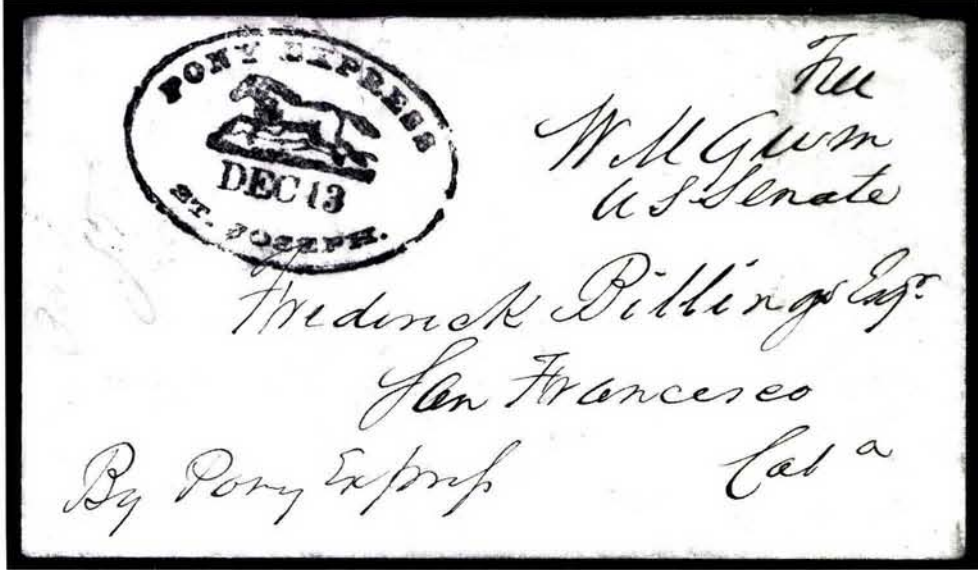 PONY EXPRESS
DEC 13
ST. JOSEPH.
Free
W M Gwin
U S Senate
Frederick Billings Esqr.
San Francisco
Cala
By Pony Express